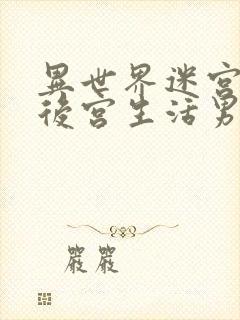 異世界迷宮
後宮生活男
嚴嚴